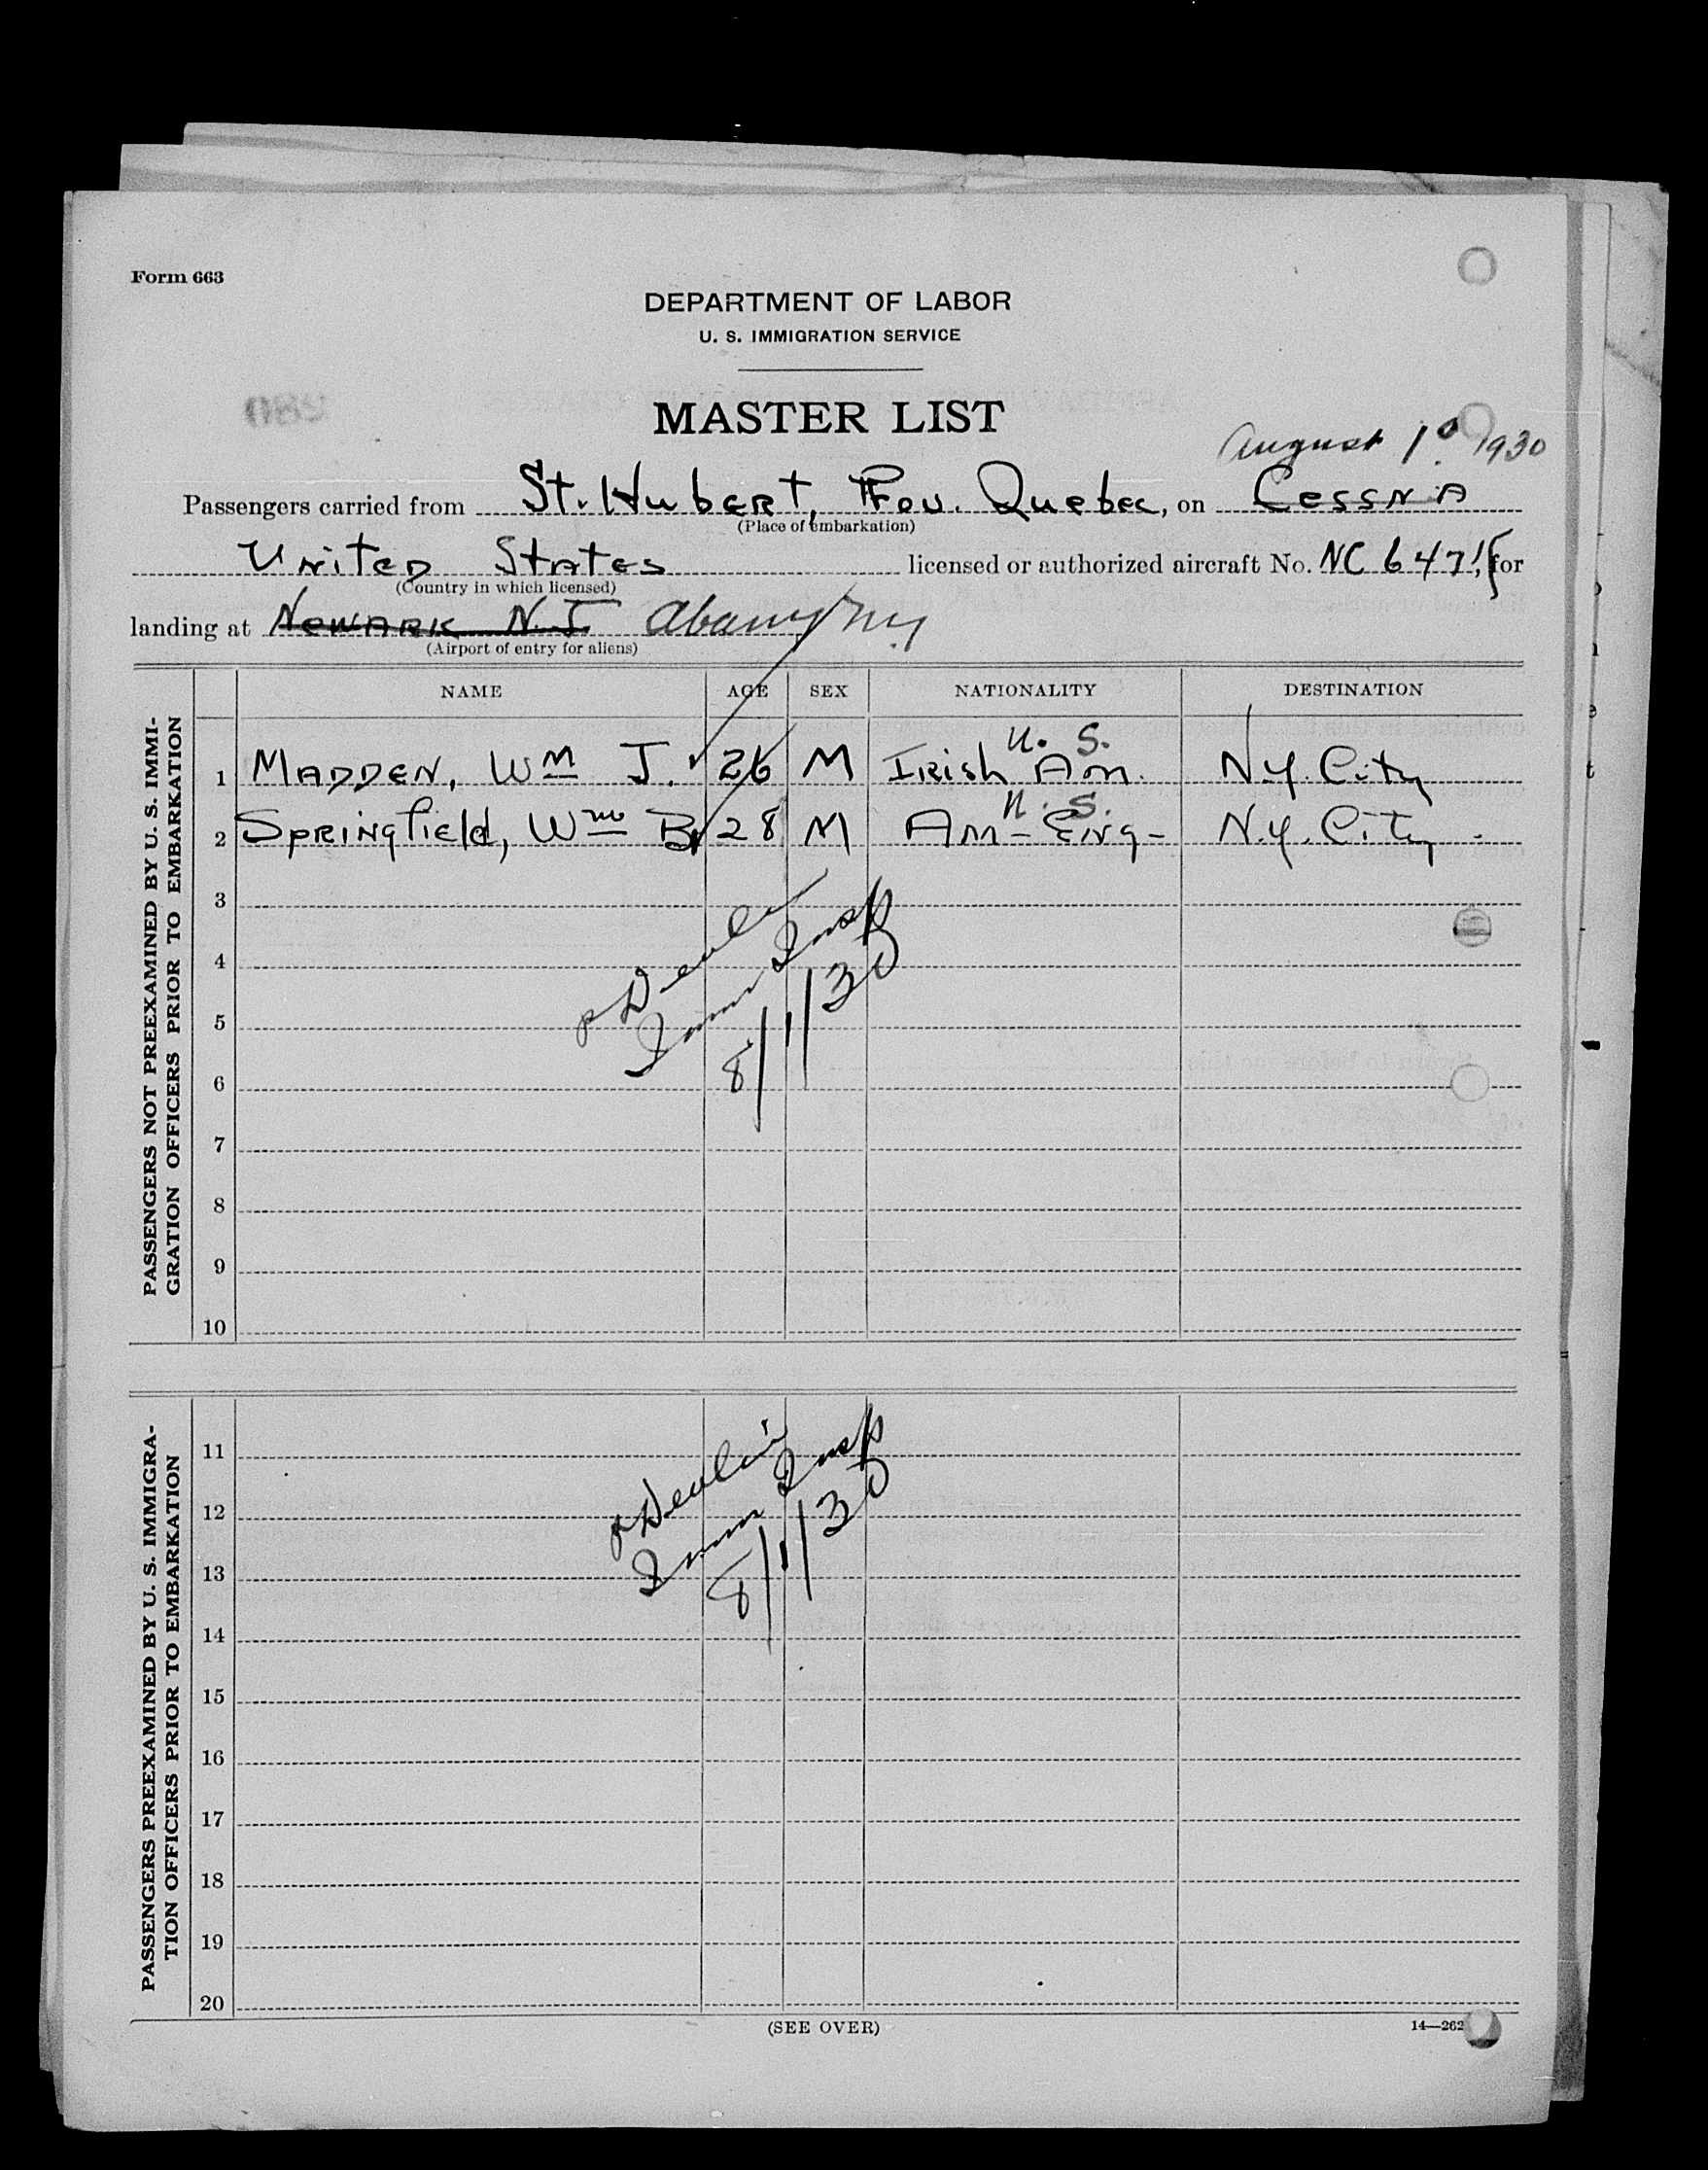 Form 663
DEPARTMENT OF LABOR
U. S. IMMIGRATION SERVICE
MASTER LIST
August 1 1930
Passengers carried from St. Hubert, Prov. Quebec, on Cessna
(Place of embarkation)
United States licensed or authorized aircraft No. NC 647 for
(Country in which licensed)
landing at Newark N.J. Abany Ny
(Airport of entry for aliens)
PASSENGERS NOT PREEXAMINED BY U. S. IMMI-
GRATION OFFICERS PRIOR TO EMBARKATION
NAME AGE SEX NATIONALITY DESTINATION
U. S.
1 MADDEN, Wm J. 26 M Irish Am. N.Y. City
U. S.
2 Springfield, Wm B 28 M Am - Eng - N.Y. City -
3
4
5
6
7
8
9
10
Devlin
Imm Insp
8/1/30
PASSENGERS PREEXAMINED BY U. S. IMMIGRA-
TION OFFICERS PRIOR TO EMBARKATION
11
12
13
14
15
16
17
18
19
20
Devlin
Imm Insp
8/1/30
(SEE OVER)
14—262